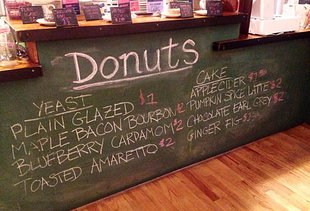 Donuts
YEAST
PLAIN GLAZED $1
MAPLE BACON BOURBON $2
BLUEBERRY CARDAMOM $2
TOASTED AMARETTO $2
CAKE
APPLE CIDER
PUMPKIN SPICE LATTE $2
CHOCOLATE EARL GREY $2
GINGER FIG